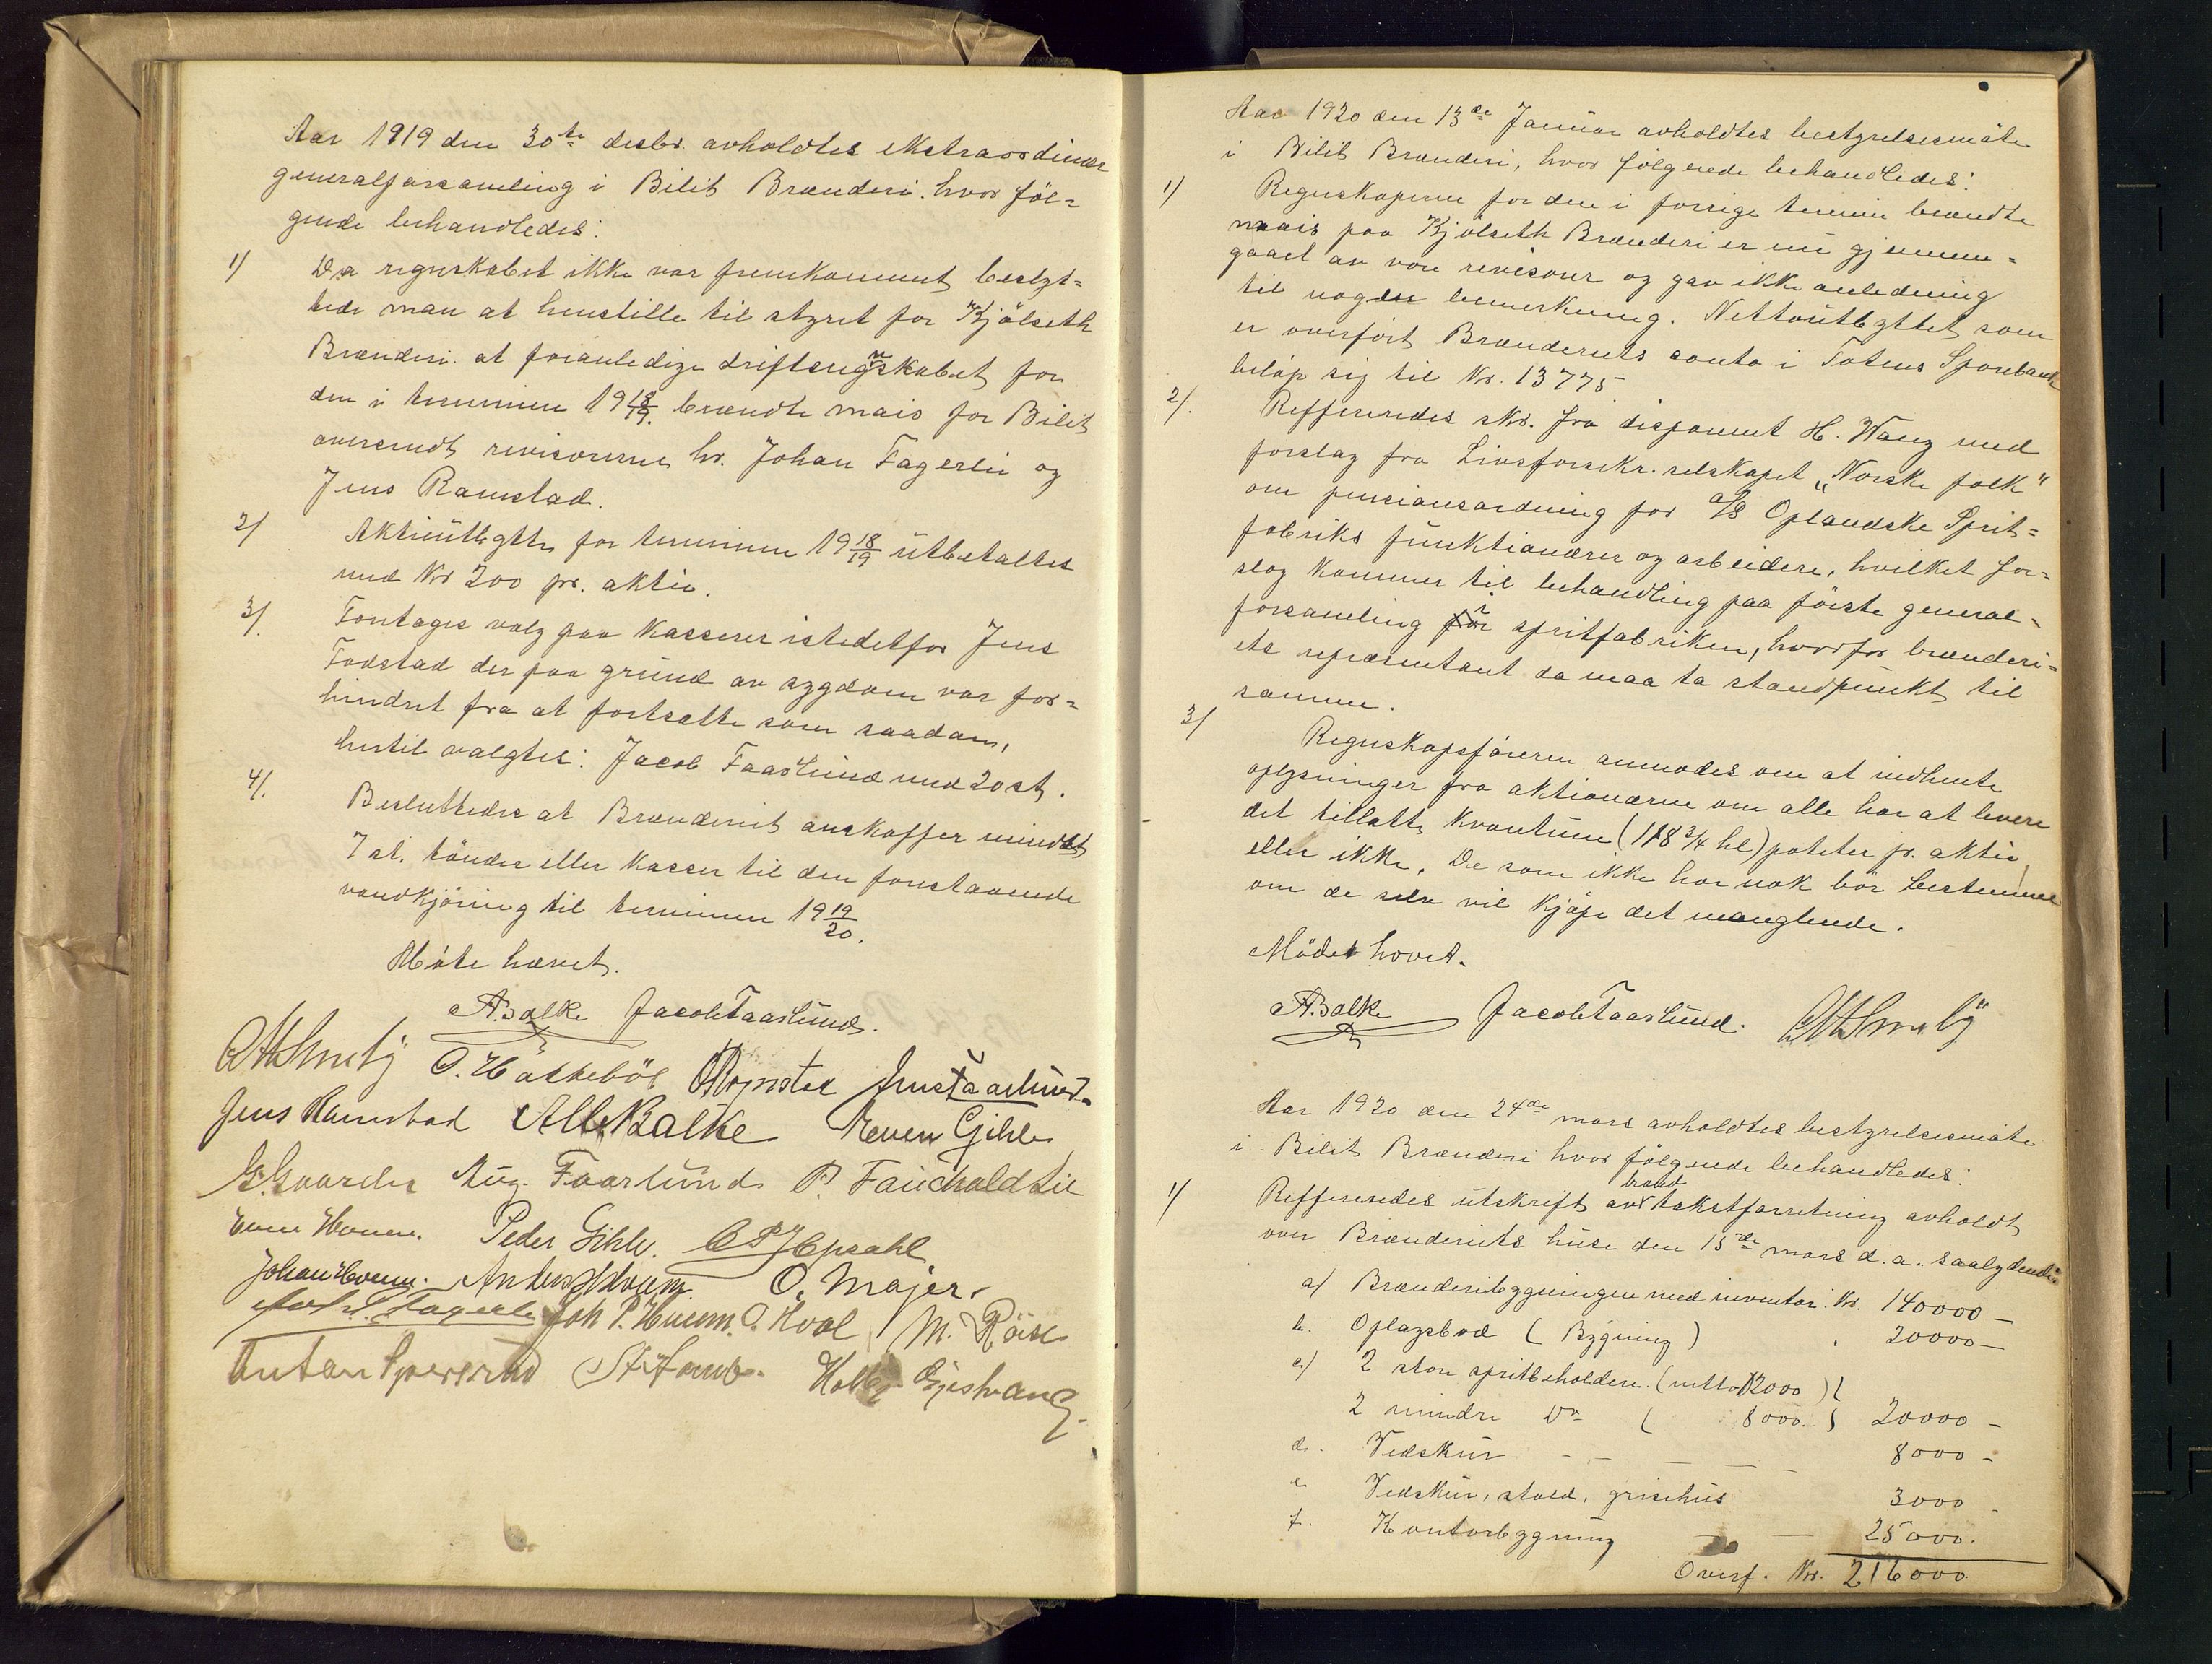 Aar 1919 den 30te desbr. avholdtes ekstraordinær
generalforsamling i Bilit Brænderi. hvor föl=
gende behandledes:
1/ Da regnskabet ikke var fremkommet beslyt=
tede man at henstille til styret for Kjölseth
Brænderi. at foranledige driftsregnskabet for
den i terminen 19 18/19. brændte mais for Bilit
oversendt revisorerne hr. Johan Fagerlie og
Jens Ramstad.
2/ Aktieutbytte for terminen 19 18/19 utbetaltes
med Kr 200 pr. aktie.
3/. Fortages valg paa Kasserer istedetfor Jens
Fodstad der paa grund av sygdom var for=
hindret fra at fortsætte som saadan,
hertil valgtes: Jacob Faarlund med 20 st.
4/. Besluttedes at Brænderiet anskaffer mindst
7 st. tönder eller Kasser til den forestaaende
vandkjöring til terminen 19 19/20.
Möte hævet.
A. Balke Jacob Faarlund.
O. Häkkeböl Jens Faarlund.
Jens Ramstad Alb. Balke Even Gihle
G. Gaarder Aug. Faarlund P. Fauchaldlie
Even Homm. Peder Gihle. C P Hepsahl
Johan Homm. O. Majer.
Joh P. Homm. O. Hval M. Röise
Anton
Aar 1920 den 13de Januar avholdtes bestyrelsesmöte
i Bilit Brænderi, hvor fölgende behandledes:
1/ Regnskaperne for den i forrige termin brændte
mais paa Kjölseth Brænderi er nu gjennem=
gaaet av vore revisorer og gav ikke anledning
til nogen bemerkning. Nettoutbyttet som
er overfört Brænderiets conto i Totens Sparebank
belöp sig til Kr. 13775
2/. Reffereredes skr. fra disponent H. Wang med
forslag fra Livsforsikr. selskapet „Norske folk"
om pensionsordning for a/s Oplandske Sprit=
fabriks funktionærer og arbeidere, hvilket for=
slag kommer til behandling paa förste general=
forsamling i spritfabriken, hvorfor brænderi=
ets representant da maa ta standpunkt til
samme.
3/ Regnskapsföreren anmodes om at indhente
oplysninger fra aktionærne om alle har at levere
det tillatte kvantum (118 3/4 hl) poteter pr. aktie,
eller ikke. De som ikke har nok bör bestemme
om de selv vil kjöpe det manglende.
Mödet hævet.
A. Balke Jacob Faarlund.
Aar 1920 den 24de mars avholdtes bestyrelsesmöte
i Bilit Brænderi hvor fölgende behandledes:
1/ Reffereredes utskrift av brand takstforretning avholdt
over Brænderiets huse den 15de mars d.a.. saalydende:
a/ Brænderibygningen med inventar. Kr. 140000 –
b. Oplagsbod (Bygning) 20000 –
c/ 2 store spritbeholdere. (netto 12000)
2 mindre Do ( 8000. 20000 –
d. Vedskur 8000 –
e Vedskur, stald, grisehus 3000 –
f. Kontorbygning – 25000.
Overf. Kr. 216000